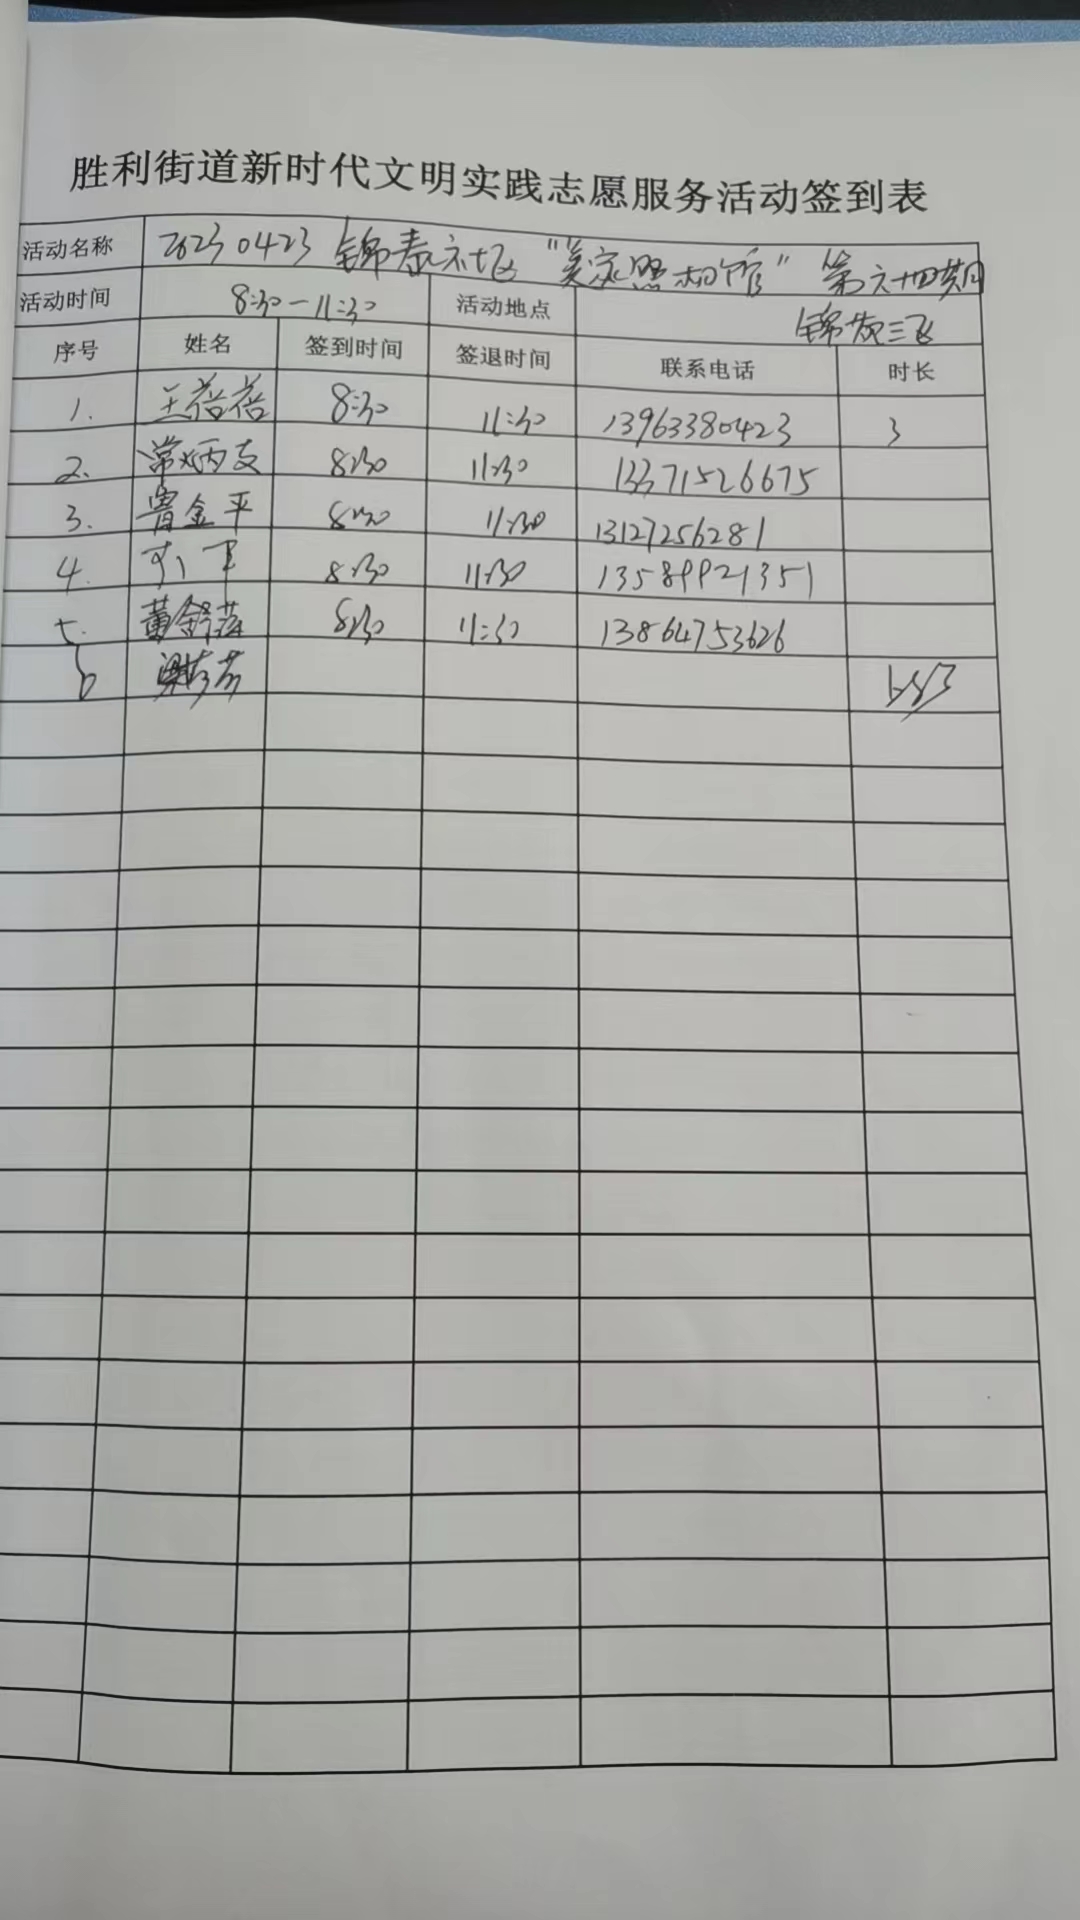 胜利街道新时代文明实践志愿服务活动签到表
活动名称 20230423 锦泰社区 "吴家照相馆" 第六十四期
活动时间 8:30-11:30 活动地点 锦苑三区
序号 姓名 签到时间 签退时间 联系电话 时长
1. 王蓓蓓 8:30 11:30 13963380423 3
2. 常炳友 8:30 11:30 13371526675
3. 曹金平 8:30 11:30 13127256281
4. 8:30 11:30 13589921351
5. 黄舒萍 8:30 11:30 13864753626
6